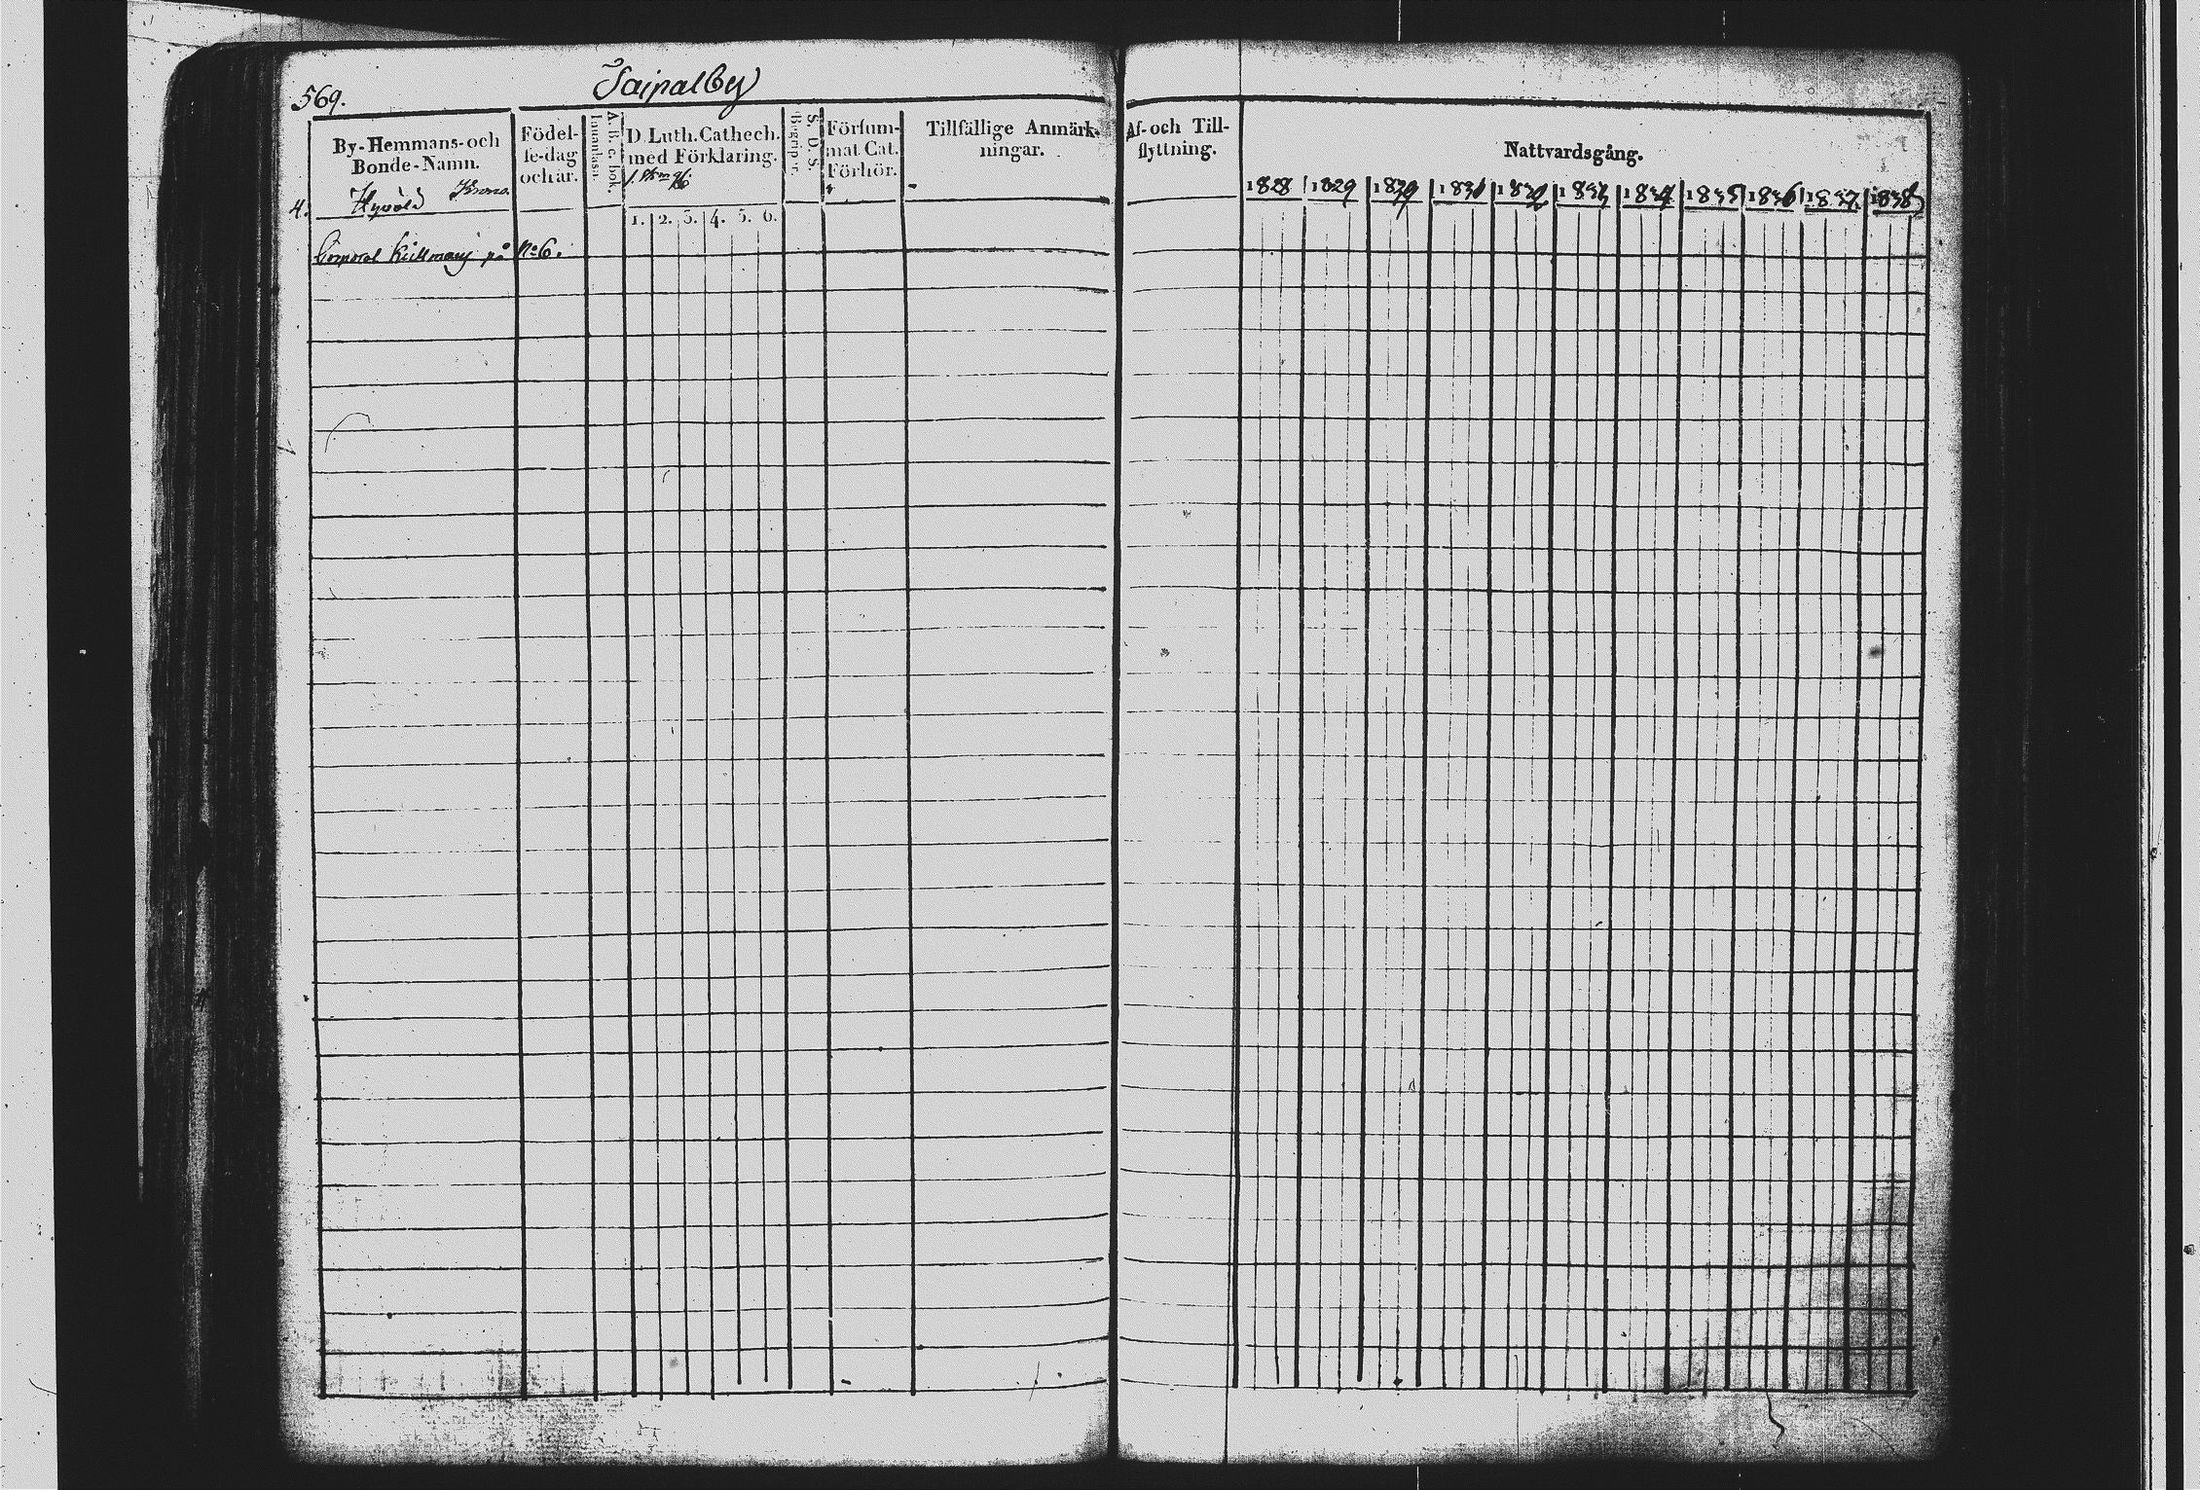 569.
Saipalby
By-Hemmans-och
Bonde-Namn.
Hyvölä Krono
4.
Födel-
se-dag
och år.
A. B. c. bok.
Innanläsn.
D. Luth. Cathech.
med Förklaring.
1. 2. 3. 4. 5. 6.
S. D. S.
Begrip:r.
Försum-
mat Cat.
Förhör.
Tillfällige Anmärk-
ningar.
Af- och Till-
flyttning.
Nattvardsgång.
1828 1829 1830 1831 1832 1833 1834 1835 1836 1837. 1838
Corporal på No 6.